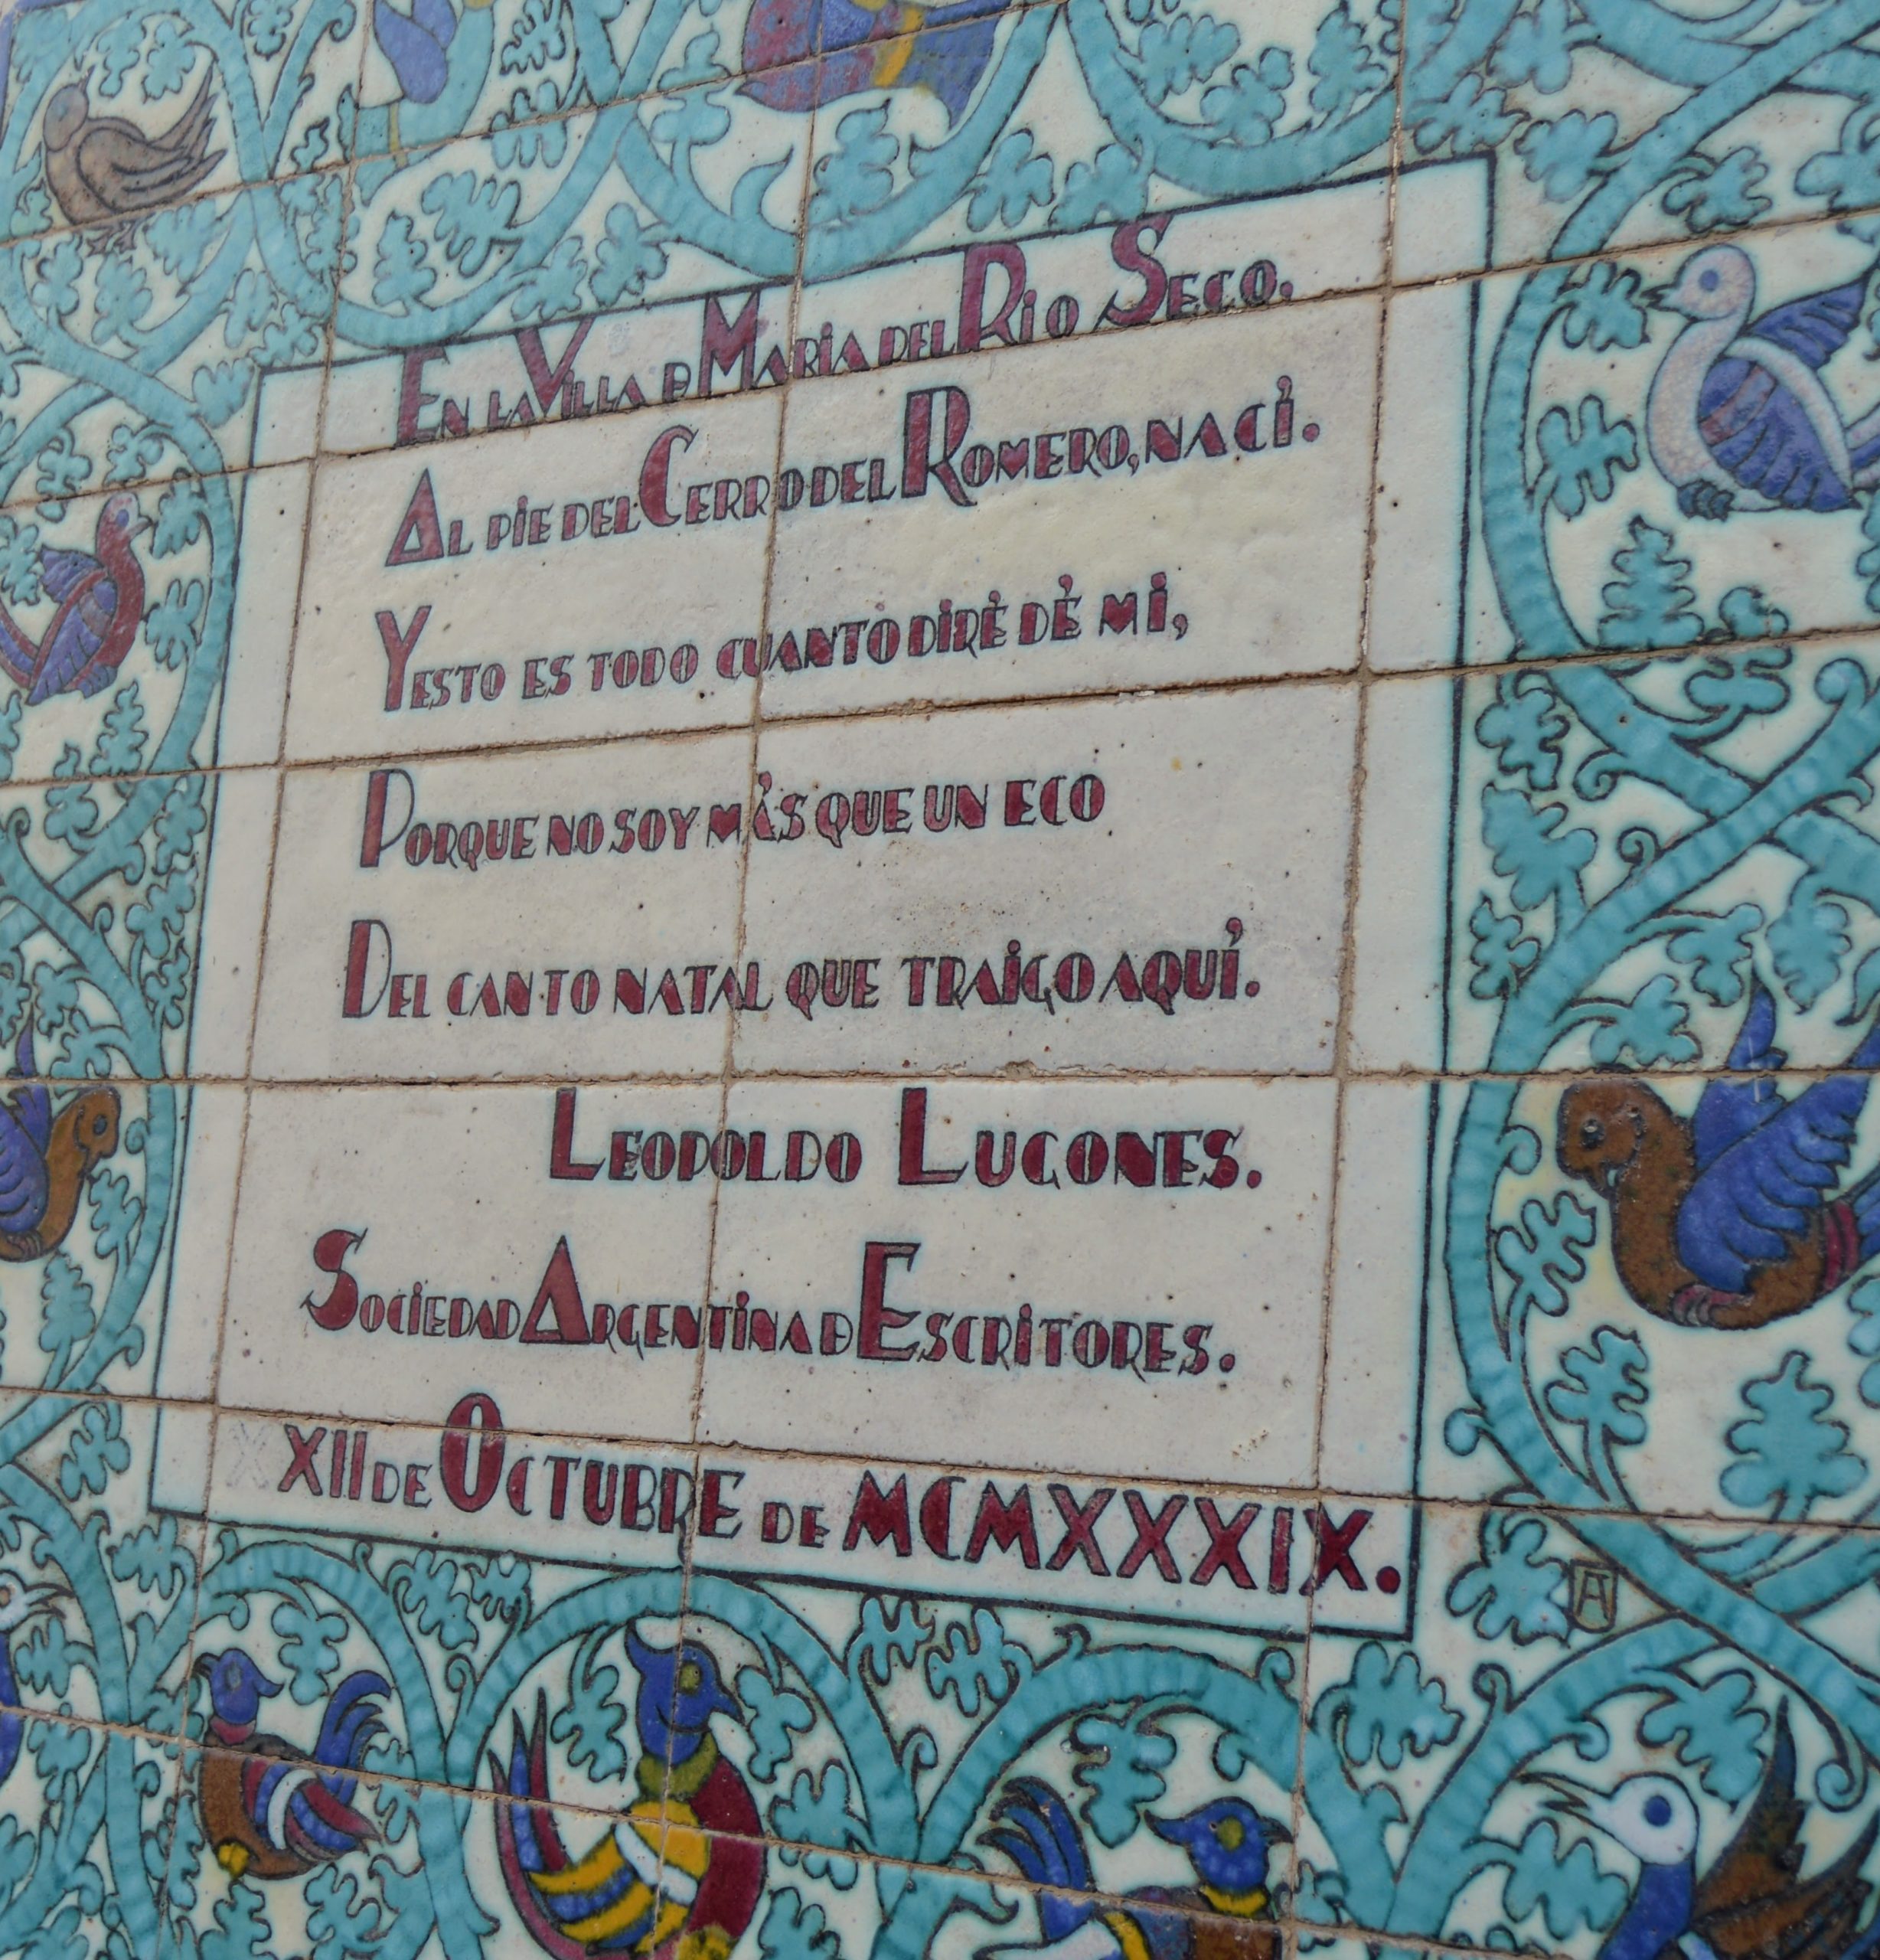 EN LA VILLA DE MARIA DEL RIO SECO.
AL PIE DEL CERRO DEL ROMERO, NACÍ.
Y ESTO ES TODO CUANTO DIRÉ DÉ MÍ,
PORQUE NO SOY MÁS QUE UN ECO
DEL CANTO NATAL QUE TRAIGO AQUÍ.
LEOPOLDO LUGONES.
SOCIEDAD ARGENTINA DE ESCRITORES.
XII DE OCTUBRE DE MCMXXXIX.